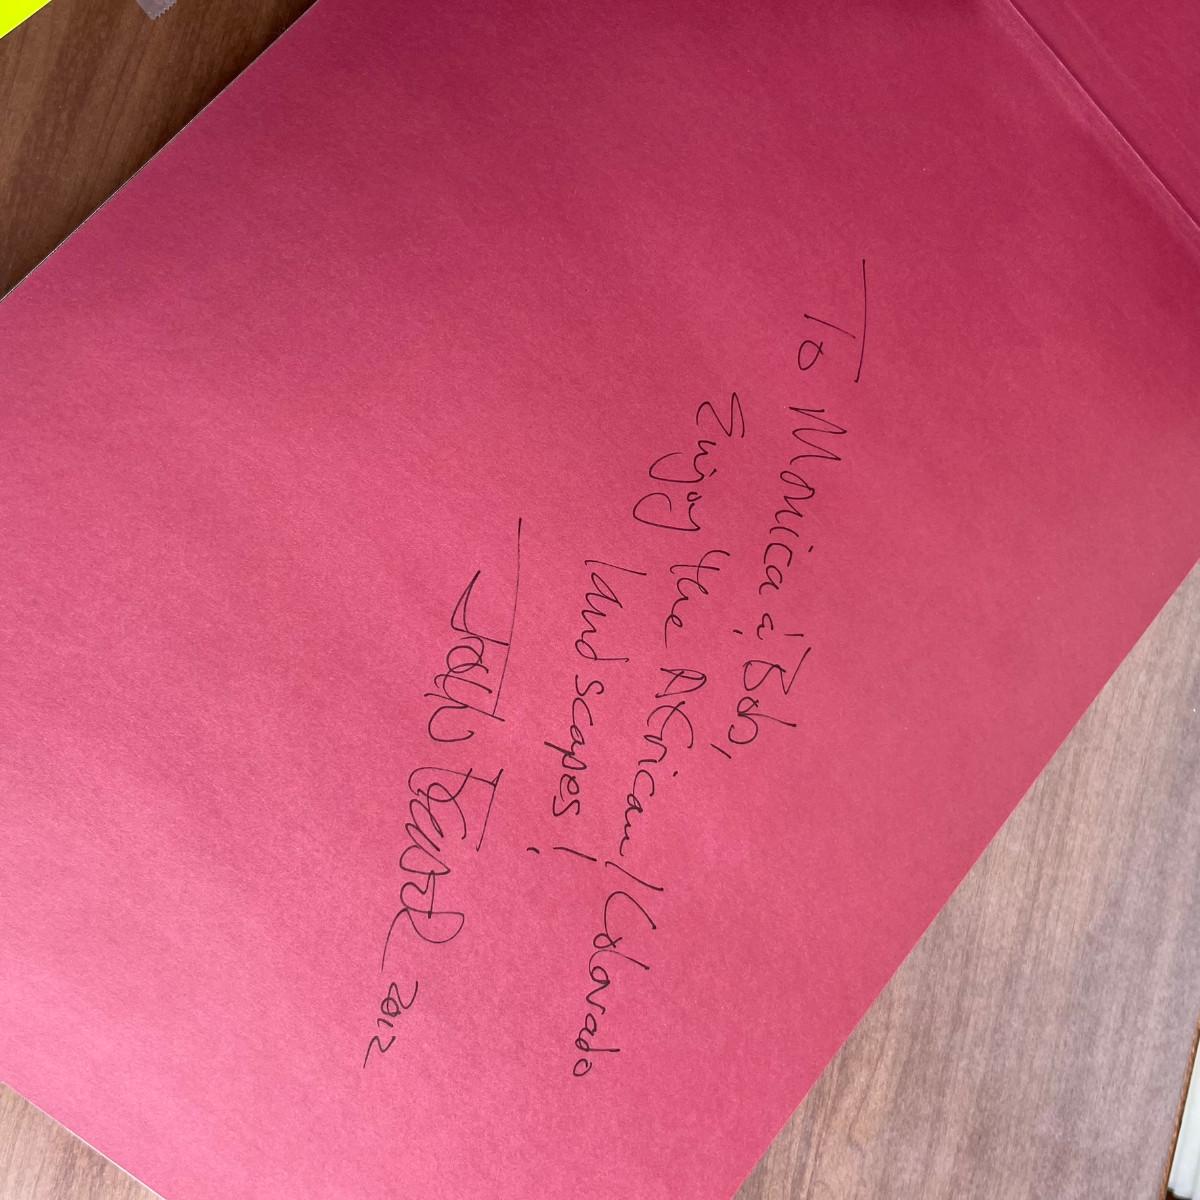 To Monica & Bob,
Enjoy the African/Colorado
landscapes!
John
2012